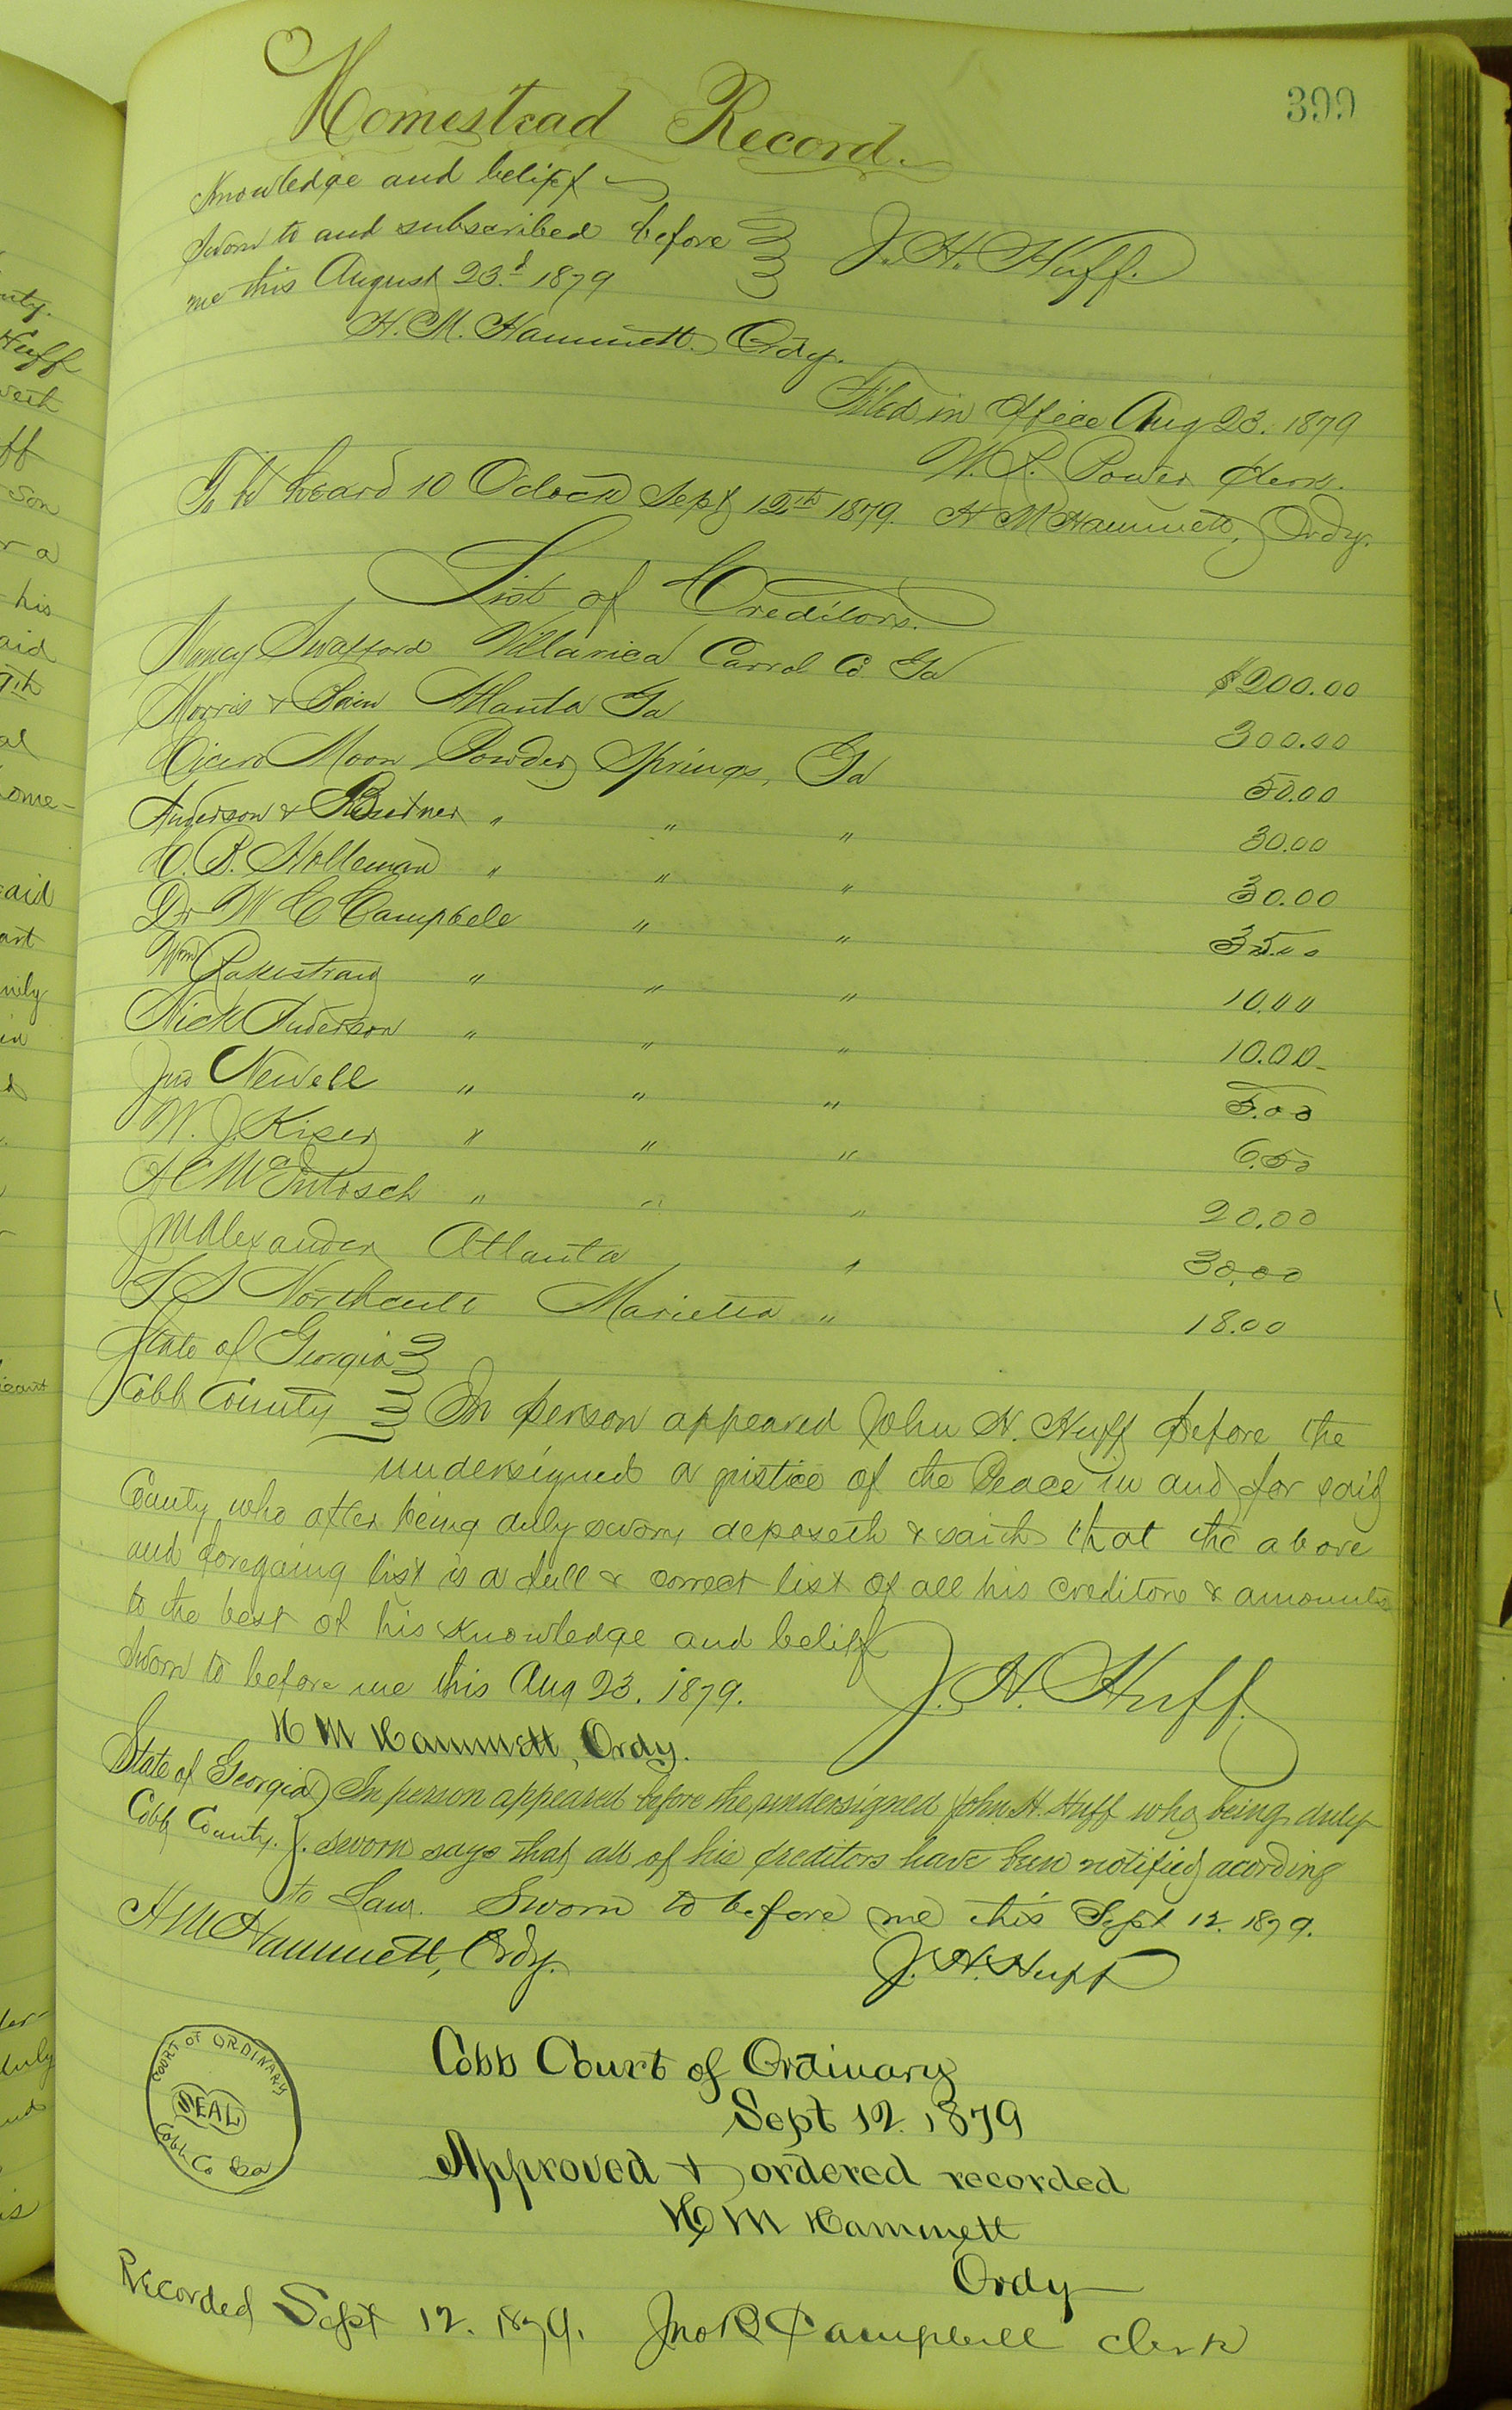 399
Homestead Record.
Knowledge and belief
Sworn to and subscribed before J. H. Huff.
me this August 23.d 1879
H. M. Hammett Ordy.
Filed in Office Aug 23. 1879
Power Clerk.
To be heard 10 Oclock Sept 12th 1879. H M Hammett, Ordy.
List of Creditors.
Nancy Swafford Villarica Carrol Co Ga $200.00
Morris & Atlanta Ga 300.00
Cicero Moon Powder Springs, Ga 50.00
Anderson & " " " 30.00
Holleman " " " 30.00
Dr W C Campbell " " 35.00
Wm Rakestraw " " " 10.00
Nick Anderson " " " 10.00
Jno Newell " " " 5.00
W. J. Kiser " " " 6.50
A C McIntosch " " " 20.00
J M Alexander Atlanta " 30.00
Northcutt Marietta " 18.00
State of Georgia
Cobb County In person appeared John H. Huff before the
undersigned a justice of the Peace in and for said
County who after being duly sworn deposeth & saith that the above
and foregoing list is a full & correct list of all his creditors & amounts
to the best of his knowledge and belief
Sworn to before me this Aug 23. 1879. J. H. Huff.
H M Hammett, Ordy.
State of Georgia In person appeared before the undersigned John H. Huff who being duly
Cobb County. sworn says that all of his creditors have been notified acording
to Law. Sworn to before me this Sept 12. 1879.
H M Hammett, Ordy. J. H. Huff
COURT OF ORDINARY
SEAL
Cobb Co Ga
Cobb Court of Ordinary
Sept 12. 1879
Approved & ordered recorded
H M Hammett
Ordy
Recorded Sept 12. 1879. Jno R Campbell Clerk